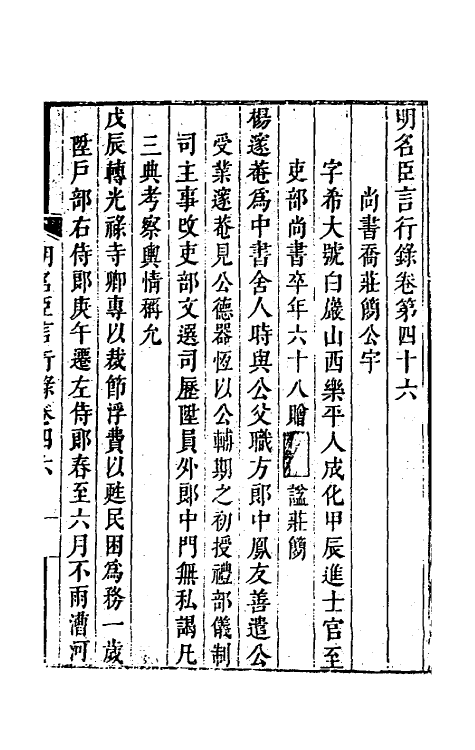 明名臣言行錄卷第四十六
尚書喬莊簡公宇
字希大號白巖山西樂平人成化甲辰進士官至
吏部尚書卒年六十八贈 謚莊簡
楊邃菴爲中書舍人時與公父職方郎中鳳友善遣公
受業邃菴見公德器恆以公輔期之初授禮部儀制
司主事改吏部文選司歷陞員外郎中門無私謁凡
三典考察輿情稱允
戊辰轉光祿寺卿專以裁節浮費以甦民困爲務一歲
陞戶部右侍郎庚午遷左侍郎春至六月不雨漕河
明名臣言行錄卷四六 一